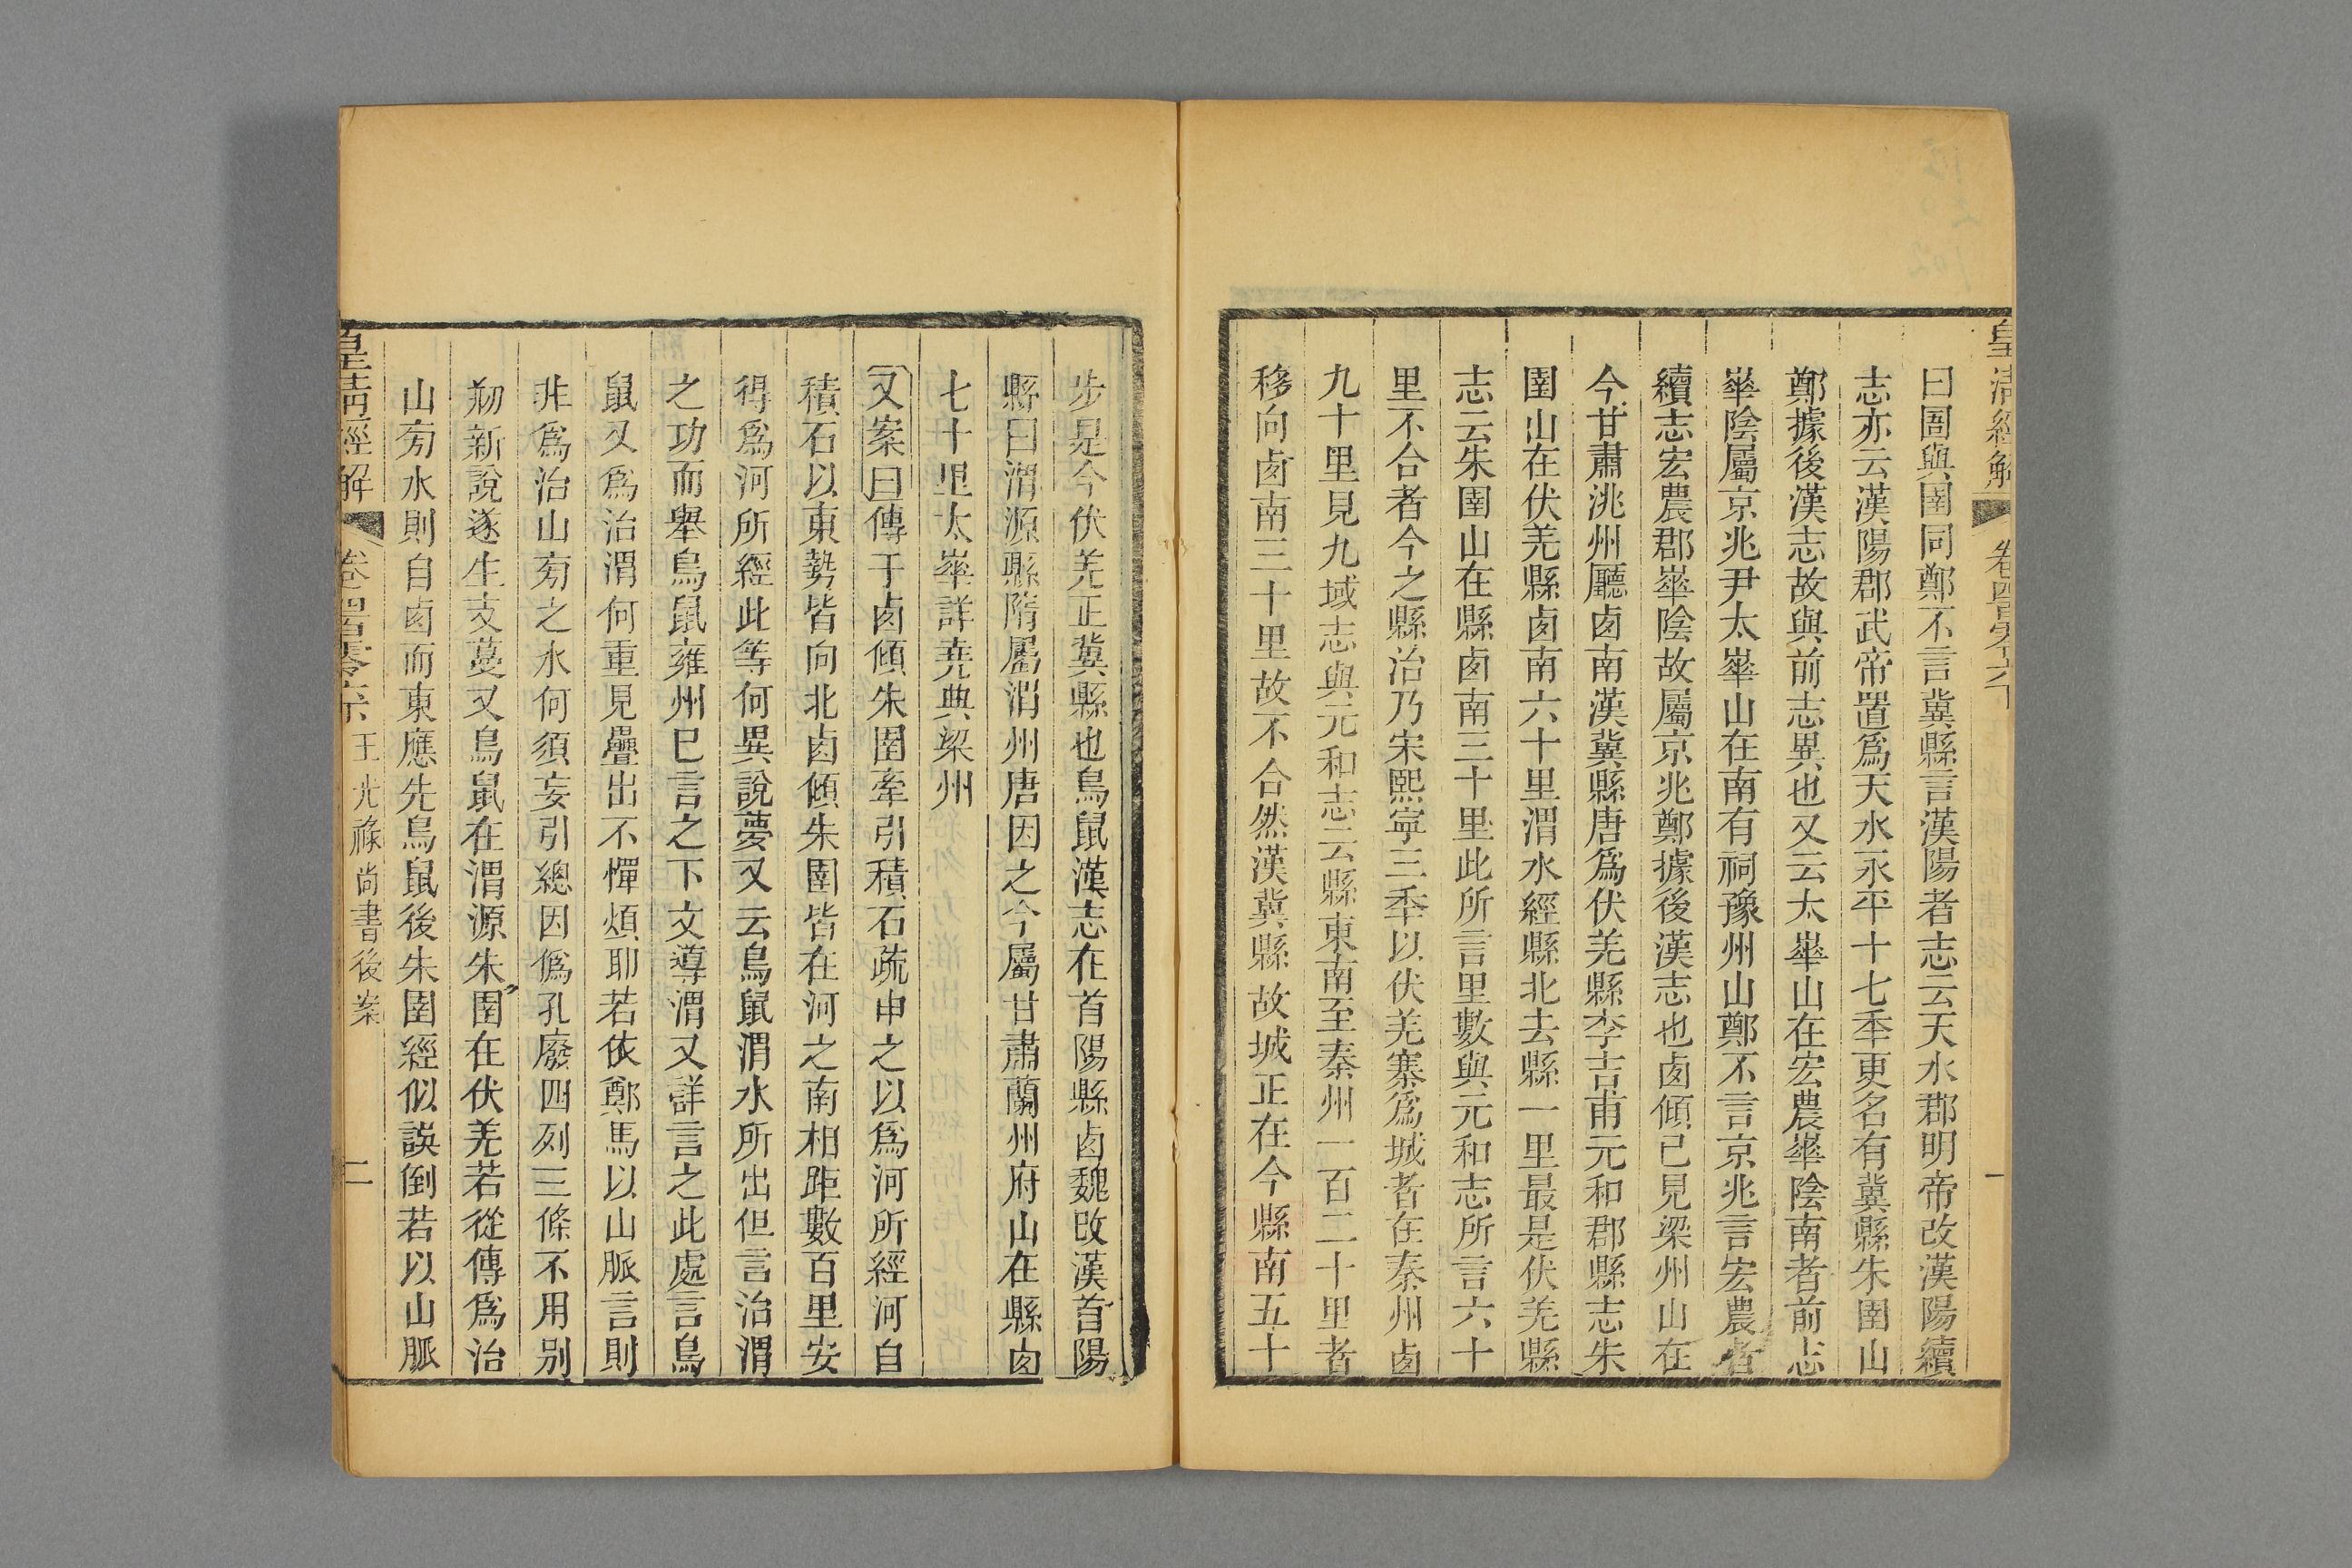 皇清經解 卷四百零六下 一
曰圄與圉同鄭不言冀縣言漢陽者志云天水郡明帝改漢陽續
志亦云漢陽郡武帝置爲天水永平十七秊更名有冀縣朱圉山
鄭據後漢志故與前志異也又云太崋山在宏農崋陰南者前志
崋陰屬京兆尹太崋山在南有祠豫州山鄭不言京兆言宏農者
續志宏農郡崋陰故屬京兆鄭據後漢志也卥傾已見梁州山在
今甘肅洮州廳卥南漢冀縣唐爲伏羌縣李吉甫元和郡縣志朱
圉山在伏羌縣卥南六十里渭水經縣北去縣一里最是伏羌縣
志云朱圉山在縣卥南三十里此所言里數與元和志所言六十
里不合者今之縣治乃宋熙寧三秊以伏羌寨爲城者在秦州卥
九十里見九域志與元和志云縣東南至秦州一百二十里者
移向卥南三十里故不合然漢冀縣故城正在今縣南五十
步是今伏羌正冀縣也鳥鼠漢志在首陽縣卥魏改漢首陽
縣曰渭源縣隋屬渭州唐因之今屬甘肅蘭州府山在縣卥
七十里太崋詳堯典梁州
又案曰傳于卥傾朱圉牽引積石疏申之以爲河所經河自
積石以東勢皆向北卥傾朱圉皆在河之南相距數百里安
得爲河所經此等何異說夢又云鳥鼠渭水所出但言治渭
之功而舉鳥鼠雍州已言之下文導渭又詳言之此處言鳥
鼠又爲治渭何重見疊出不憚煩耶若依鄭馬以山脈言則
非爲治山㫄之水何須妄引總因僞孔廢四列三條不用别
剏新說遂生支蔓又鳥鼠在渭源朱圉在伏羌若從傳爲治
山㫄水則自卥而東應先鳥鼠後朱圉經似誤倒若以山脈
皇清經解 卷四百零六下 王光祿尚書後案 二